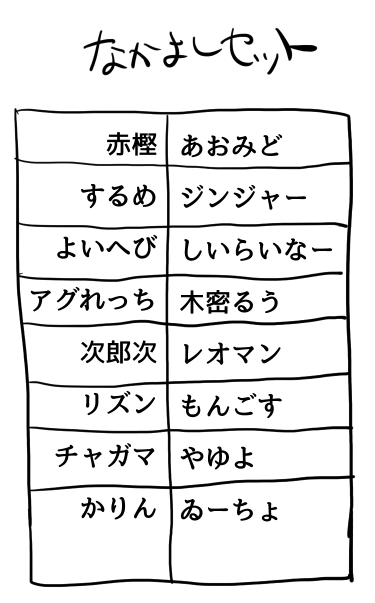 なかよしセット
赤樫 あおみど
するめ ジンジャー
よいへび しいらいなー
アグれっち 木密るう
次郎次 レオマン
リズン もんごす
チャガマ やゆよ
かりん ゐーちょ